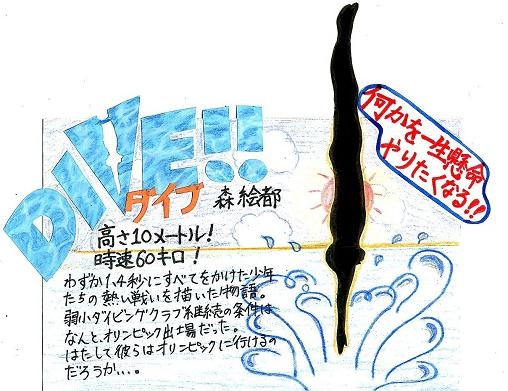 DIVE!!
ダイブ 森 絵都
何かを一生懸命
やりたくなる!!
高さ10メートル!
時速60キロ!
わずか1.4秒にすべてをかけた少年
たちの熱い戦いを描いた物語。
弱小ダイビングクラブ継続の条件は
なんと、オリンピック出場だった。
はたして彼らはオリンピックに行けるの
だろうか…。